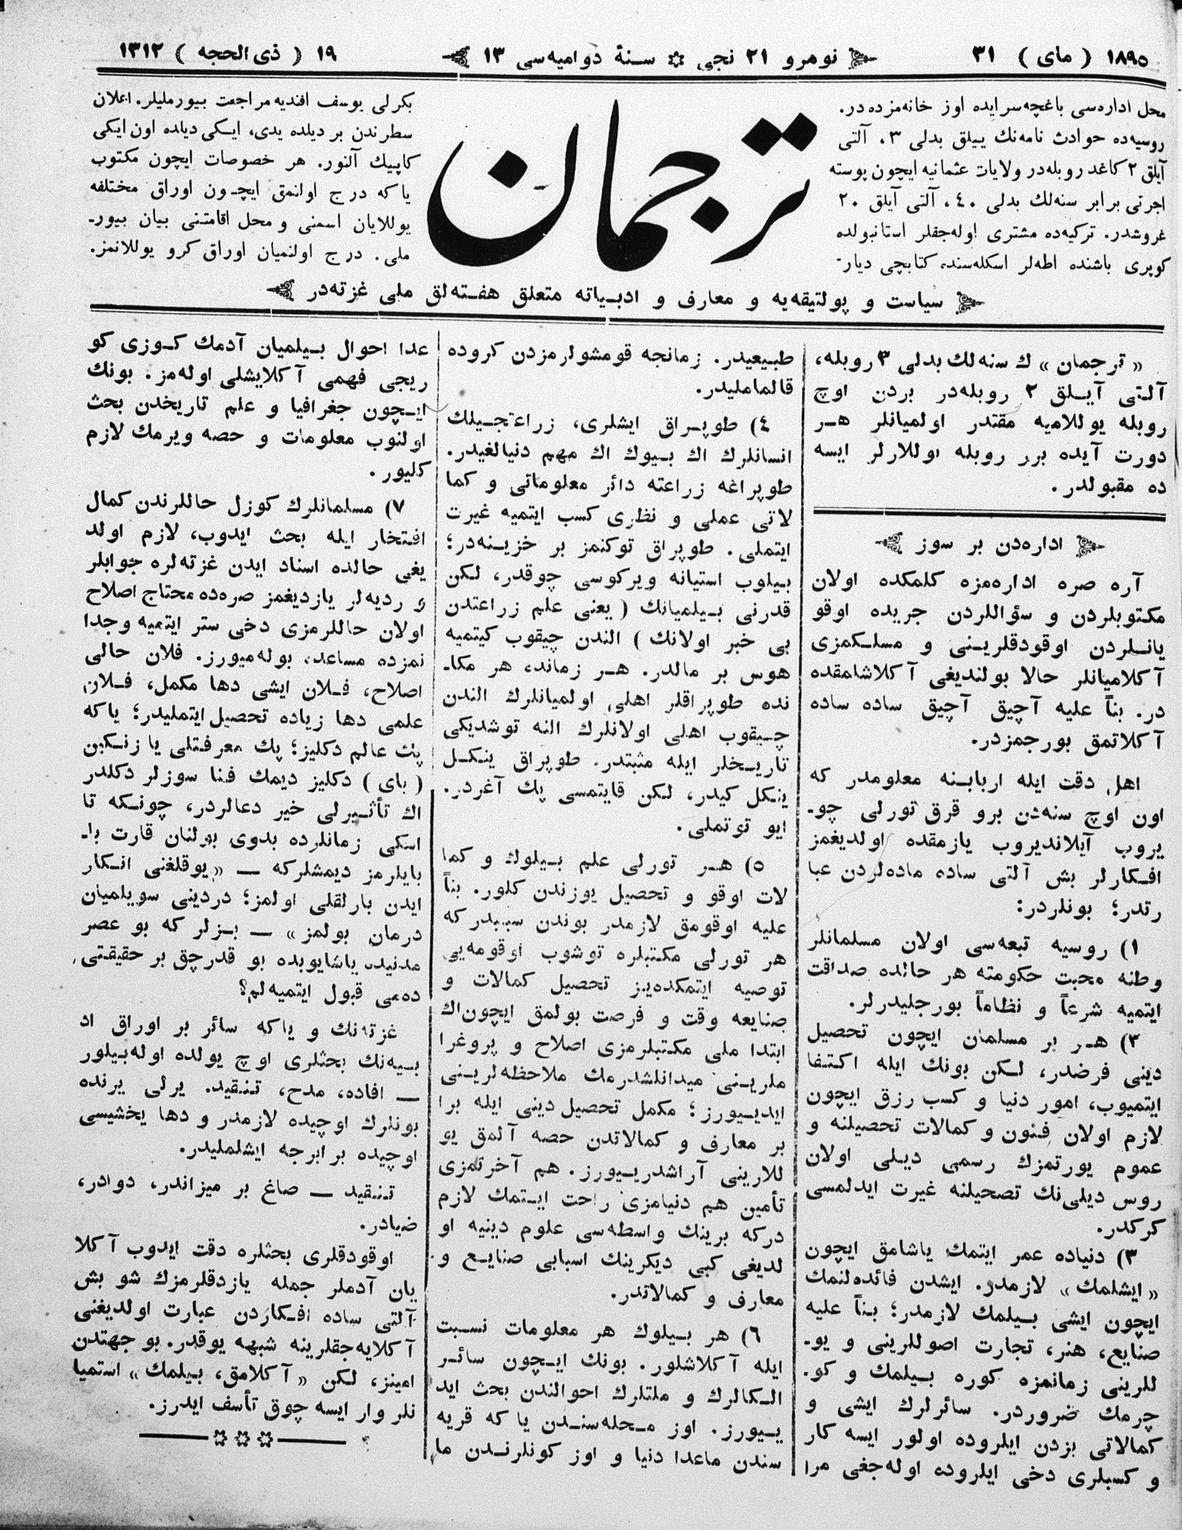 ١٨٩٥ ( ماى ) ٣١
نومرو ٢١ نجى ✲ سنهٔ دواميه‌سى ١٣
١٩ ( ذى الحجه ) ١٣١٢
محل اداره‌سى باغچه‌سرايده اوز خانه‌مزده‌در.
روسيه‌ده حوادث نامه‌نك ييللق بدلى ٣، آلتى
آيلق ٢ كاغد روبله‌در ولايات عثمانيه ايچون پوسته
اجرتى برابر سنه‌لك بدلى ٤٠، آلتى آيلق ٢٠
غروشدر. تركيه‌ده مشترى اوله‌جقلر استانبولده
كوپرى باشنده اطه‌لر اسكله‌سنده كتابچى ديار-
ترجمان
بكرلى يوسف افنديه مراجعت بيورمليلر. اعلان
سطرندن بر ديلده يدى، ايكى ديلده اون ايكى
كاپيك آلنور. هر خصوصات ايچون مكتوب
ياكه درج اولنمق ايچون اوراق مختلفه
يوللايان اسمنى و محل اقامتنى بيان بيور-
ملى. درج اولنميان اوراق كرو يوللانمز.
سياست و پولتيقه‌يه و معارف و ادبياته متعلق هفته‌لق ملى غزته‌در
« ترجمان » ك سنه‌لك بدلى ٣ روبله،
آلتى آيلق ٢ روبله‌در بردن اوچ
روبله يوللاميه مقتدر اولميانلر هر
دورت آيده برر روبله يوللارلر ايسه
ده مقبولدر.
اداره‌دن بر سوز
آره صره اداره‌مزه كلمكده اولان
مكتوبلردن و سؤاللردن جريده اوقو
يانلردن اوقودقلرينى و مسلكمزى
آكلاميانلر حالا بولنديغى آكلاشلمقده
در. بناً عليه آچيق آچيق ساده ساده
آكلاتمق بورجمزدر.
اهل دقت ايله اربابنه معلومدر كه
اون اوچ سنه‌دن برو قرق تورلى چو-
يروب آيلانديروب يازمقده اولديغمز
افكارلر بش آلتى ساده ماده‌لردن عبا
رتدر؛ بونلردر:
١) روسيه تبعه‌سى اولان مسلمانلر
وطنه محبت حكومته هر حالده صداقت
ايتميه شرعاً و نظاماً بورجليدرلر.
٢) هر بر مسلمان ايچون تحصيل
دينى فرضدر، لكن بونك ايله اكتفا
ايتميوب، امور دنيا و كسب رزق ايچون
لازم اولان فنون و كمالات تحصيلنه و
عموم يورتمزك رسمى ديلى اولان
روس ديلى‌نك تصحيلنه غيرت ايدلمسى
كركدر.
٣) دنياده عمر ايتمك ياشامق ايچون
« ايشلمك » لازمدر. ايشدن فائده‌لنمك
ايچون ايشى بيلمك لازمدر؛ بناً عليه
صنايع، هنر، تجارت اصوللرينى و يو-
للرينى زمانمزه كوره بيلمك و كو-
چرمك ضروردر. سائرلرك ايشى و
كمالاتى بزدن ايلروده اولور ايسه كار
و كسبلرى دخى ايلروده اوله‌جغى مرا
طبيعيدر. زمانجه قومشولرمزدن كروده
قالمامليدر.
٤) طوپراق ايشلرى، زراعتجيلك
انسانلرك اك بيوك اك مهم دنيالغيدر.
طوپراغه زراعته دائر معلوماتى و كما
لاتى عملى و نظرى كسب ايتميه غيرت
ايتملى. طوپراق توكنمز بر خزينه‌در؛
بيلوب استيانه ويركوسى چوقدر، لكن
قدرنى بيلميانك ( يعنى علم زراعتدن
بى خبر اولانك ) الندن چيقوب كيتميه
هوس بر مالدر. هر زماند، هر مكا-
نده طوپراقلر اهلى اولميانلرك الندن
چيقوب اهلى اولانلرك النه توشديكى
تاريخلر ايله مثبتدر. طوپراق ينكل
ينكل كيدر، لكن قايتمسى پك آغردر.
ايو توتملى.
٥) هر تورلى علم بيلوك و كما
لات اوقو و تحصيل يوزندن كلور. بناً
عليه اوقومق لازمدر بوندن سببدر كه
هر تورلى مكتبلره توشوب اوقومه‌يى
توصيه ايتمكده‌يز تحصيل كمالات و
صنايعه وقت و فرصت بولمق ايچون اك
ابتدا ملى مكتبلرمزى اصلاح و پروغرا
ملرينى ميدانلشدرمك ملاحظه‌لرينى
ايديورز؛ مكمل تحصيل دينى ايله برا
بر معارف و كمالاتدن حصه آلمق يو
للارينى آراشدريورز. هم آخرتمزى
تأمين هم دنيامزى راحت ايتمك لازم
دركه برينك واسطه‌سى علوم دينيه او
لديغى كبى ديكرينك اسبابى صنايع و
معارف و كمالاتدر.
٦) هر بيلوك هر معلومات نسبت
ايله آكلاشلور. بونك ايچون سائر
الكالرك و ملتلرك احوالندن بحث ايد
يورز. اوز محله‌سندن ياكه قريه
سندن ماعدا دنيا و اوز كونلرندن ما
عدا احوال بيلميان آدمك كوزى كو
ريجى فهمى آكلايشلى اوله‌مز. بونك
ايچون جغرافيا و علم تاريخدن بحث
اولنوب معلومات و حصه ويرمك لازم
كليور.
٧) مسلمانلرك كوزل حاللرندن كمال
افتخار ايله بحث ايدوب، لازم اولد
يغى حالده اسناد ايدن غزته‌لره جوابلر
و رديه‌لر يازديغمز صره‌ده محتاج اصلاح
اولان حاللرمزى دخى ستر ايتميه وجدا
نمزده مساعد، بوله‌ميورز. فلان حالى
اصلاح، فلان ايشى دها مكمل، فلان
علمى دها زياده تحصيل ايتمليدر؛ ياكه
پك عالم دكليز؛ پك معرفتلى يا زنكين
( باى ) دكليز ديمك فنا سوزلر دكلدر
اك تأثيرلى خير دعالردر، چونكه تا
اسكى زمانلرده بدوى بولنان قارت با-
بايلرمز ديمشلركه — « يوقلغنى انكار
ايدن بارلقلى اولمز؛ دردينى سويلميان
درمان بولمز » — بزلر كه بو عصر
مدنيده ياشايوبده بو قدرچق بر حقيقتى
ده‌مى قبول ايتميه‌لم؟
غزته‌نك و ياكه سائر بر اوراق اد
بيه‌نك بحثلرى اوچ يولده اوله‌بيلور
— افاده، مدح، تنقيد. يرلى يرنده
بونلرك اوچيده لازمدر و دها يخشيسى
اوچيده برابرجه ايشلمليدر.
تنقيد — صاغ بر ميزاندر، دوادر،
ضيادر.
اوقودقلرى بحثلره دقت ايدوب آكلا
يان آدملر جمله يازدقلرمزك شو بش
آلتى ساده افكاردن عبارت اولديغنى
آكلايه‌جقلرينه شبهه يوقدر. بو جهتدن
امينز، لكن « آكلامق، بيلمك » استميا
نلر وار ايسه چوق تأسف ايدرز.